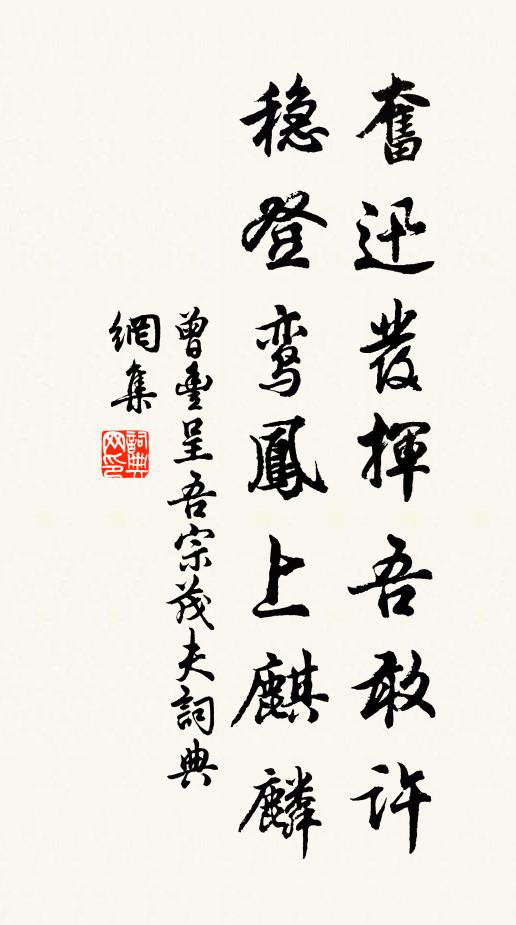 奮迅發揮吾敢許
穏登鸾鳳上麒麟
曾豐呈吾宗茂夫詞典
網集
詞典
网印